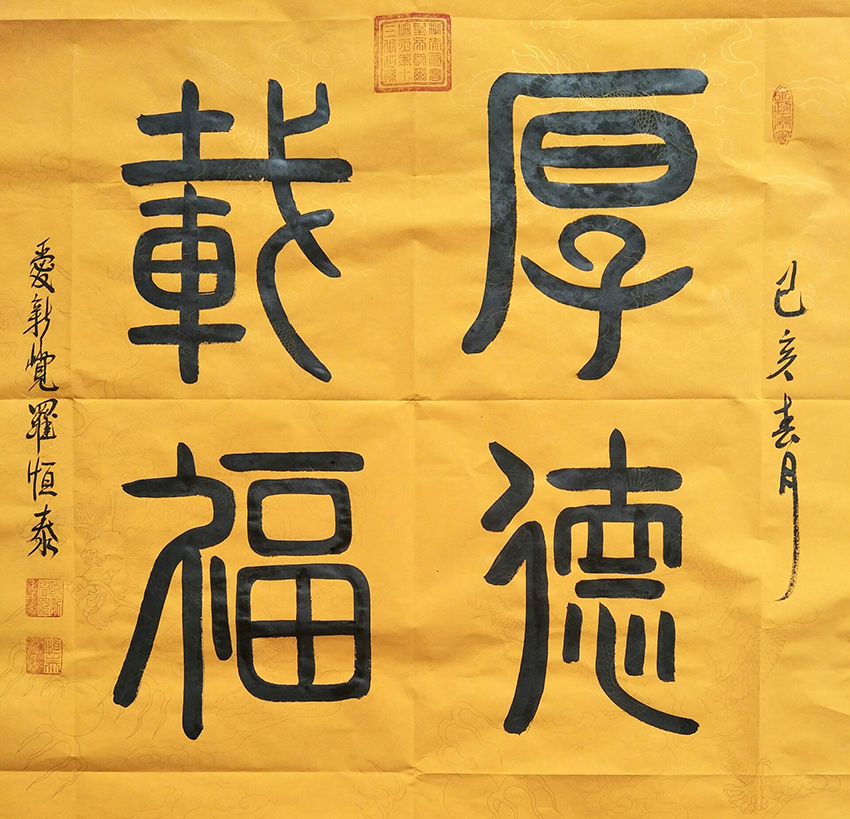 己亥春月
厚德
載福
愛新覺羅恒泰